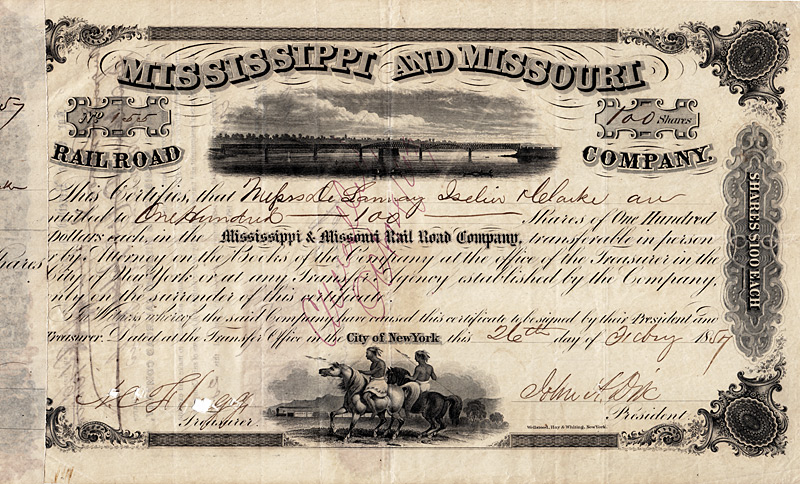 MISSISSIPPI AND MISSOURI
No 155
100 Shares
RAIL ROAD
COMPANY.
This Certifies, that Messrs De Launay Iselin & Clarke are
entitled to One Hundred 100 Shares of One Hundred
Dollars each, in the Mississippi & Missouri Rail Road Company, transferable in person
or by Attorney on the Books of the Company at the office of the Treasurer in the
City of New York or at any Transfer Agency established by the Company,
only on the surrender of this certificate.
In Witness whereof the said Company have caused this certificate to be signed by their President and
Treasurer. Dated at the Transfer Office in the City of New York this 26th day of Feby 1857
A C Flagg
Treasurer.
John A Dix
President
Wellstood, Hay & Whiting, New York.
SHARES $100 EACH